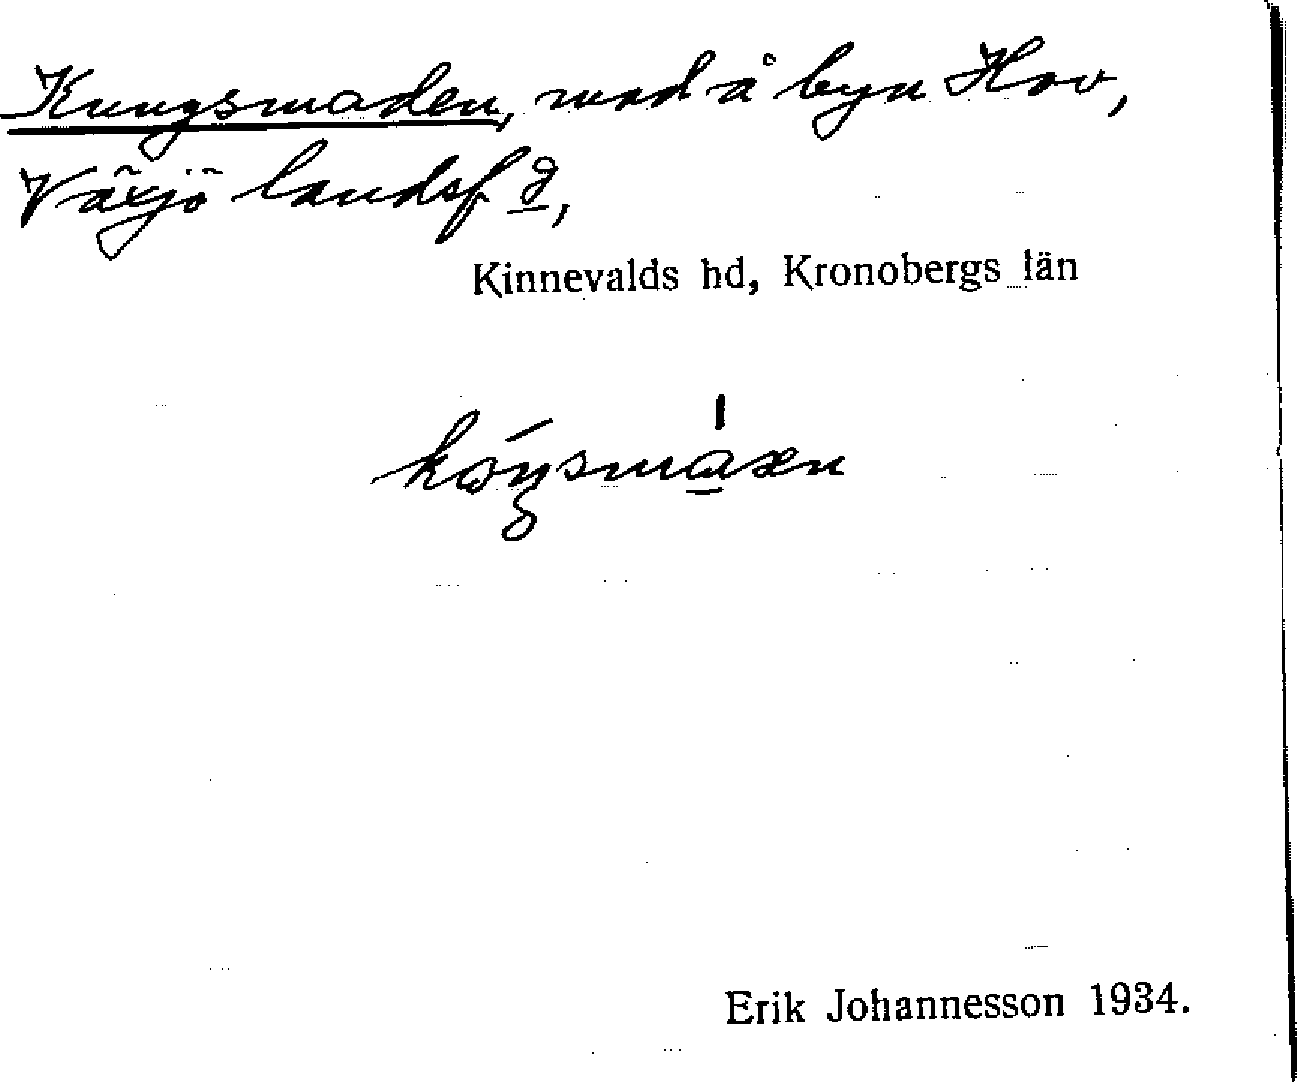 Kungsmaden, mad å byn Hov,
Växjö landsf g,
Kinnevalds hd, Kronobergs län
Erik Johannesson 1934.